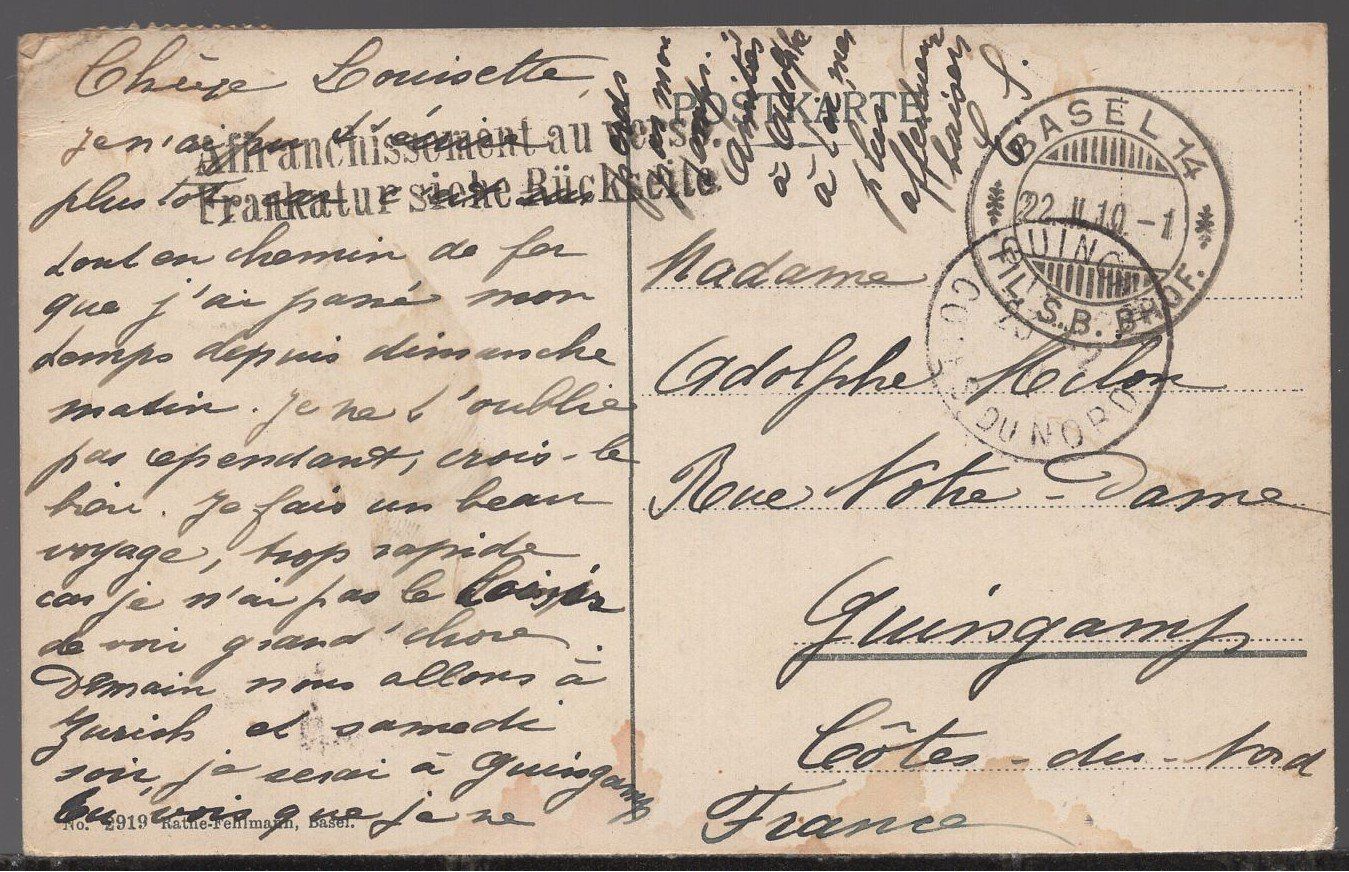 Chère Louisette,
Je n'ai pu t'écrire
plus tôt car c'est
tout en chemin de fer
que j'ai passé mon
temps depuis dimanche
matin. Je ne t'oublie
pas cependant, crois-le
bien. Je fais un beau
voyage, trop rapide
car je n'ai pas le loisir
de voir grand'chose.
Demain nous allons à
Zurich et samedi
soir, je serai à Guingamp
tu vois que je ne
perds
pas mon
temps.
Amitiés
à Adolphe
à toi mes
plus
affectueux
baisers
Affranchissement au verso.
Frankatur siehe Rückseite.
No. 2919 Rathe-Fehlmann, Basel.
POSTKARTE
BASEL 14
22.II.10.-1
FIL. S.B. BHOF.
GUING
CÔ DU NORD
Madame
Adolphe
Rue Notre-Dame
Guingamp
Côtes-du-Nord
France